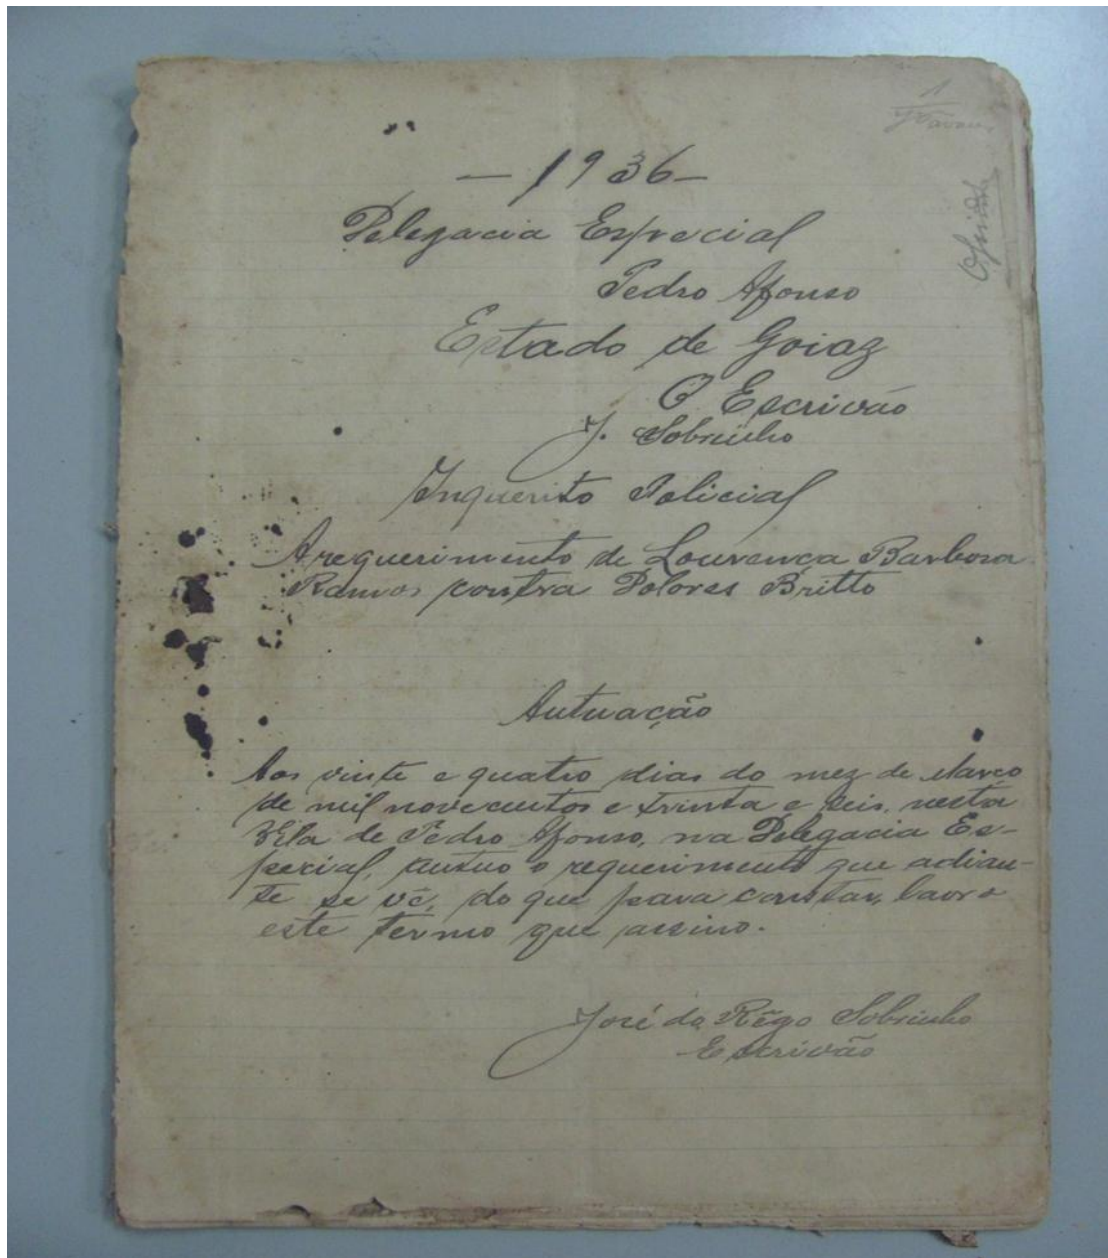 1
— 1936 —
Delegacia Especial
Pedro Afonso
Estado de Goiaz
O Escrivão
J. Sobrinho
Inquerito Policial
A requerimento de Lourença Barbosa
Ramos contra Dolores Britto
Autuação
Aos vinte e quatro dias do mez de Março
de mil novecentos e trinta e seis, nesta
Vila de Pedro Afonso, na Delegacia Es-
pecial, autuo o requerimento que adian-
te se vê, do que para constar, lavro
este termo que assino.
José do Rêgo Sobrinho
Escrivão